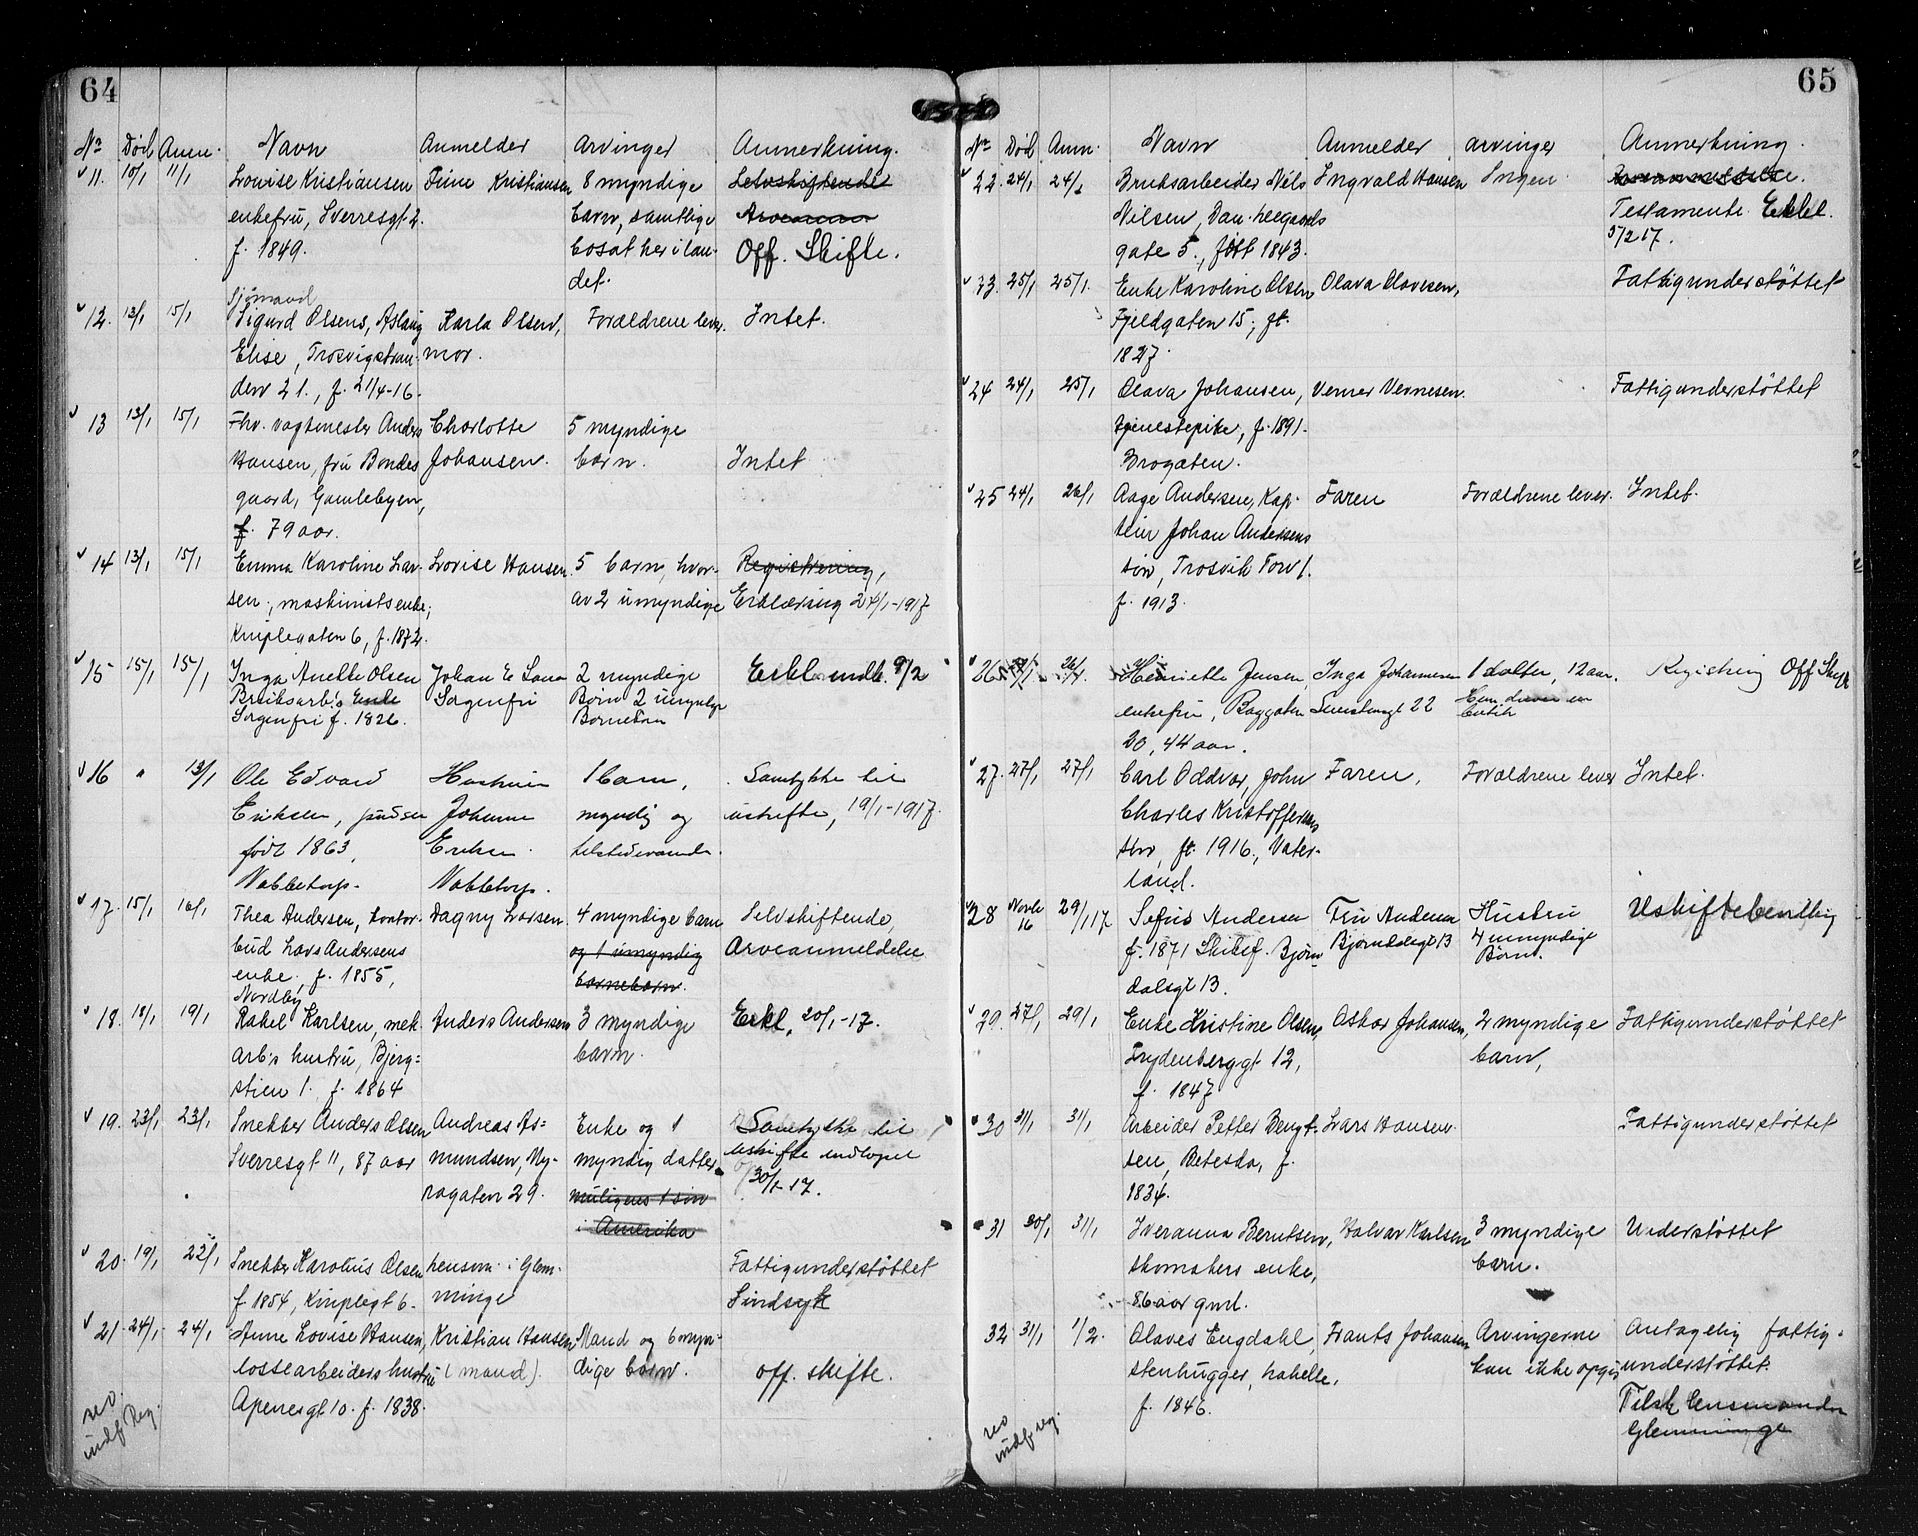 64
No Død Anm. Navn Anmelder Arvinger Anmerkning.
11. 10/1 11/1 Lovise Kristiansen Tine Kristiansen 8 myndige Selvskiftende
enkefru, Sverresgt 2. barn, samtlige
f. 1849. bosat her i lan- Off. Skifte.
det.
Sjømand
12. 13/1 15/1 Sigurd Olsens, Aslaug Karla Olsen, Forældrene lever. Intet.
Elise, Trosvigstran- mor.
den 21., f. 21/4-16.
13 13/1 15/1 Fhv. vagtmester Anders Charlotte 5 myndige
Hansen, fru Bondes Johansen. barn. Intet
gaard, Gamlebyen,
f. 79 aar.
14 13/1 15/1 Emma Karoline Lar- Lovise Hansen. 5 barn, hvor- Registrering,
sen, maskinistsenke, av 2 umyndige Erklæring 24/1-1917
Kniplegaten 6, f. 1872.
15 15/1 15/1 Inga Anette Olsen Johan E 2 myndige Erkl. indb. 9/2
Bruksarb.s Enke Sorgenfri Børn 2 umyndige
Sorgenfri f. 1826. Børnebørn
16 " 13/1 Ole Edvard Hustruen 1 barn, Samtykke til
Eriksen, født 1863, Johanne myndig og uskifte, 19/1-1917.
Nabbetorp. Eriksen tilstedeværende.
Nabbetorp.
17. 15/1 16/1 Thea Andersen, kontor- Dagny Larsen 4 myndige barn Selvskiftende,
bud Lars Andersens og 1 umyndig Arveanmeldelse
enke, f. 1855, barnebarn.
Nordby
18. 18/1 19/1 Rakel Karlsen, mek. Anders Andersen 3 myndige Erkl. 20/1-17.
arb's hustru, Bjerg= barn.
stien 1. f. 1864
19. 23/1 23/1 Snekker Anders Olsen Andreas As= Enke og 1 Samtykke til
Sverresgt 11, 87 aar mundsen, Ny- myndig datter uskifte indløpet
ragaten 29. muligens 1 søn 30/1-17.
i Amerika
20. 19/1 22/1 Snekker Karolius Olsen hensom i Glem- Fattigunderstøttet
f 1854, Kniplegt 6. minge Sindsyk
21 24/1 24/1 Anne Lovise Hansen, Kristian Hansen Mand og 6 myn-
lossearbeiders hustru (mand). dige barn. off. skifte.
Apenesgt 10. f. 1838.
rev
indf Reg.
65
No Død Anm. Navn Anmelder Arvinger Anmerkning.
22. 24/1 24/1 Bruksarbeider Nils Ingvald Hansen Ingen
Nilsen, Dan. Leegaards Testamente Erkl.
gate 5., født 1843. 5/2 17.
23. 25/1 25/1. Enke Karoline Olsen Olava Olavesen, Fattigunderstøttet
Fjeldgaten 15, ft.
1827.
24 24/1 25/1 Olava Johansen, Verner Vernesen. Fattigunderstøttet
tjenestepike, f. 1891.
Brogaten.
25 24/1 26/1 Aage Andersen, Kap- Faren Forældrene lever. Intet.
tein Johan Andersens
søn, Trosvik Torv 1.
f. 1913.
26 26/1 Henriette Jensen, Inga Johannesen 1 datter, 12 aar. Registring Off Skifte
enkefru, Baggaten 22
20, 44 aar. butik
27. 27/1 27/1 Carl Oddvar, John Faren, Forældrene lever Intet.
Charles Kristoffersens
søn, ft. 1916., Vater-
land.
28 Novbr 16 29/1 17 Sefus Andersen Fru Andersen Hustru Uskiftebevilling
f. 1871 Skibsf. Bjørn Bjørndalsgt 13 4 umyndige
dalsgt 13. Børn.
29. 27/1 29/1 Enke Kristine Olsen, Oskar Johansen, 2 myndige Fattigunderstøttet
Frydenberggt 12, barn,
f. 1847
30 31/1 31/1 Arbeider Petter Bengt- Lars Hansen Fattigunderstøttet
sen, Betesda, f.
1834.
31 30/1 31/1 Iveranna Berntsen, Halvar Karlsen 3 myndige Understøttet
skomakers enke, barn.
86 aar gml.
32 31/1 1/2. Olaves Engdahl, Frants Johansen Arvingerne Antagelig fattig-
stenhugger, kapelle, kan ikke opgis understøttet.
f. 1846. Tilsk lensmanden
Glemminge
rev
indf reg.